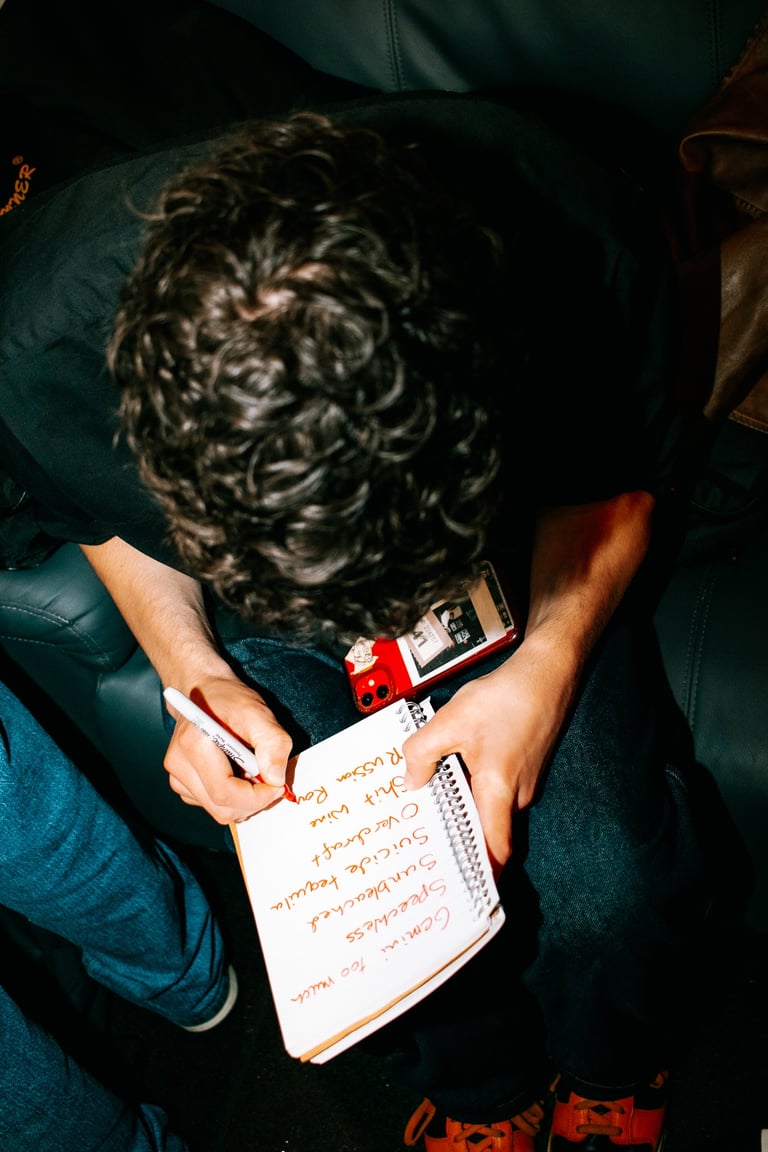 Russian Rou
Shit wine
Overdraft
Suicide tequila
Sunbleached
Speechless
Gemini too much
41